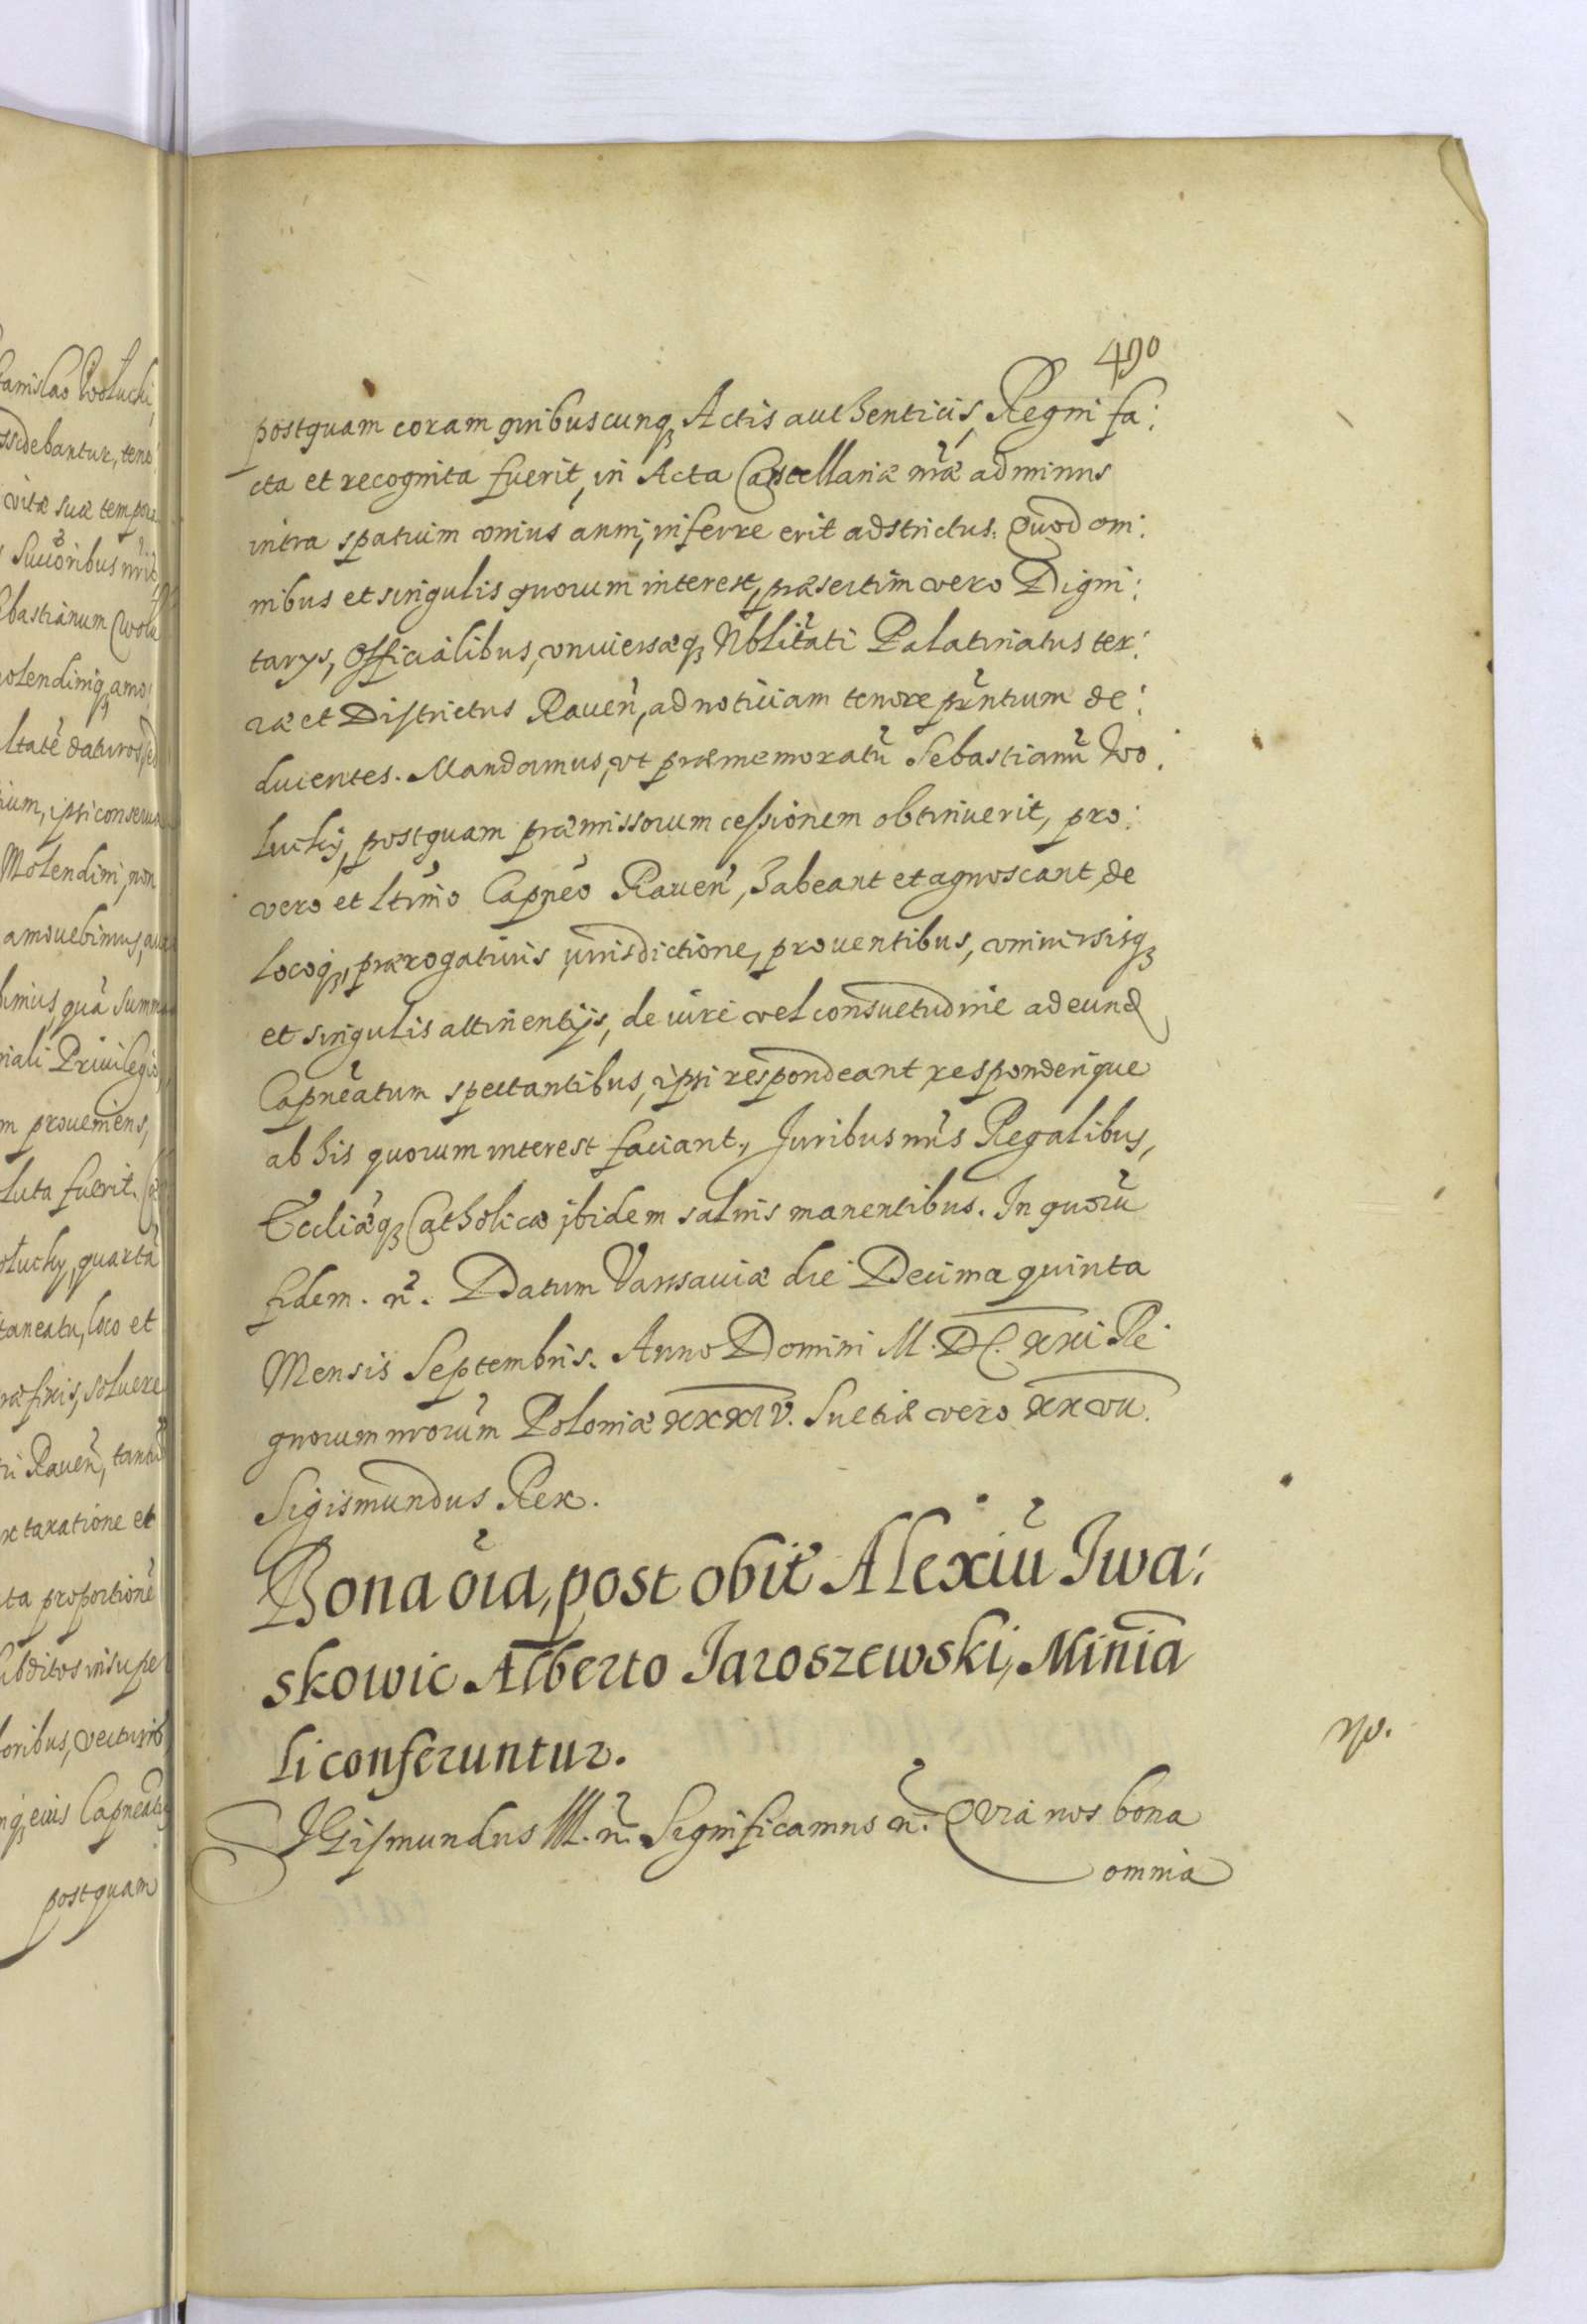 anislao Wołucki,
ssidebantur, tene
vitæ suæ tempora
Succoribus nris
ebastianum Wołu
olendiniq, amo
ltatē daturos,
ium, ipsi conserua
Molendini, non
amouebimus,
bimus, quā Summa
iali Priuilegio,
m proueniens,
luta fuerit.
ołuchy, quartā
taneatu, loco et
ræfixis, soluere
ri Rauen, tantū
x taxatione et
ta proportione
ubditos insupe
oribus, vecturis
nq, eius Capneatu
postquam
490
postquam coram quibuscunq Actis authenticis, Regni fa:
cta et recognita fuerit, in Acta Cancellariæ nræ ad minus
intra spatium vnius anni, inferre erit adstrictus. Quod om:
nibus et singulis quorum interest, præsertim vero Digni:
tarys, Officialibus, vniuersæq Nblitati Palatinatus ter:
ræ et Districtus Rauen, ad notitiam tenore pntium de:
ducentes. Mandamus, vt præmemoratū Sebastianū Wo:
łucky, postquam præmissorum cessionem obtinuerit, pro:
vero et ltimo Capneo Rauen, habeant et agnoscant, de
locoq, prærogatiuis iurisdictione, prouentibus, vniuersisq
et singulis attinentijs, de iure vel consuetudine ad eund
Capneatum spectantibus, ipsi respondeant, responderique
ab his quorum interest faciant, Juribus nris Regalibus,
Eccliæq Catholicæ ibidem saluis manentibus. In quorū
fidem. n. Datum Varsauiæ die Decima quinta
Mensis Septembris. Anno Domini M. DC. XXI Re:
gnorum nrorum Poloniæ XXXIV. Suetiæ vero XXVII.
Sigismundus Rex.
Bona oia, post obit Alexiū Iwa:
skowic Alberto Jaroszewski, Minia
li conferuntur.
SIGismundus III. n. Significamus n. Quia nos bona
omnia